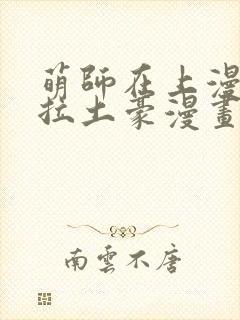 萌師在上漫
拉土豪漫畫
南雲不唐